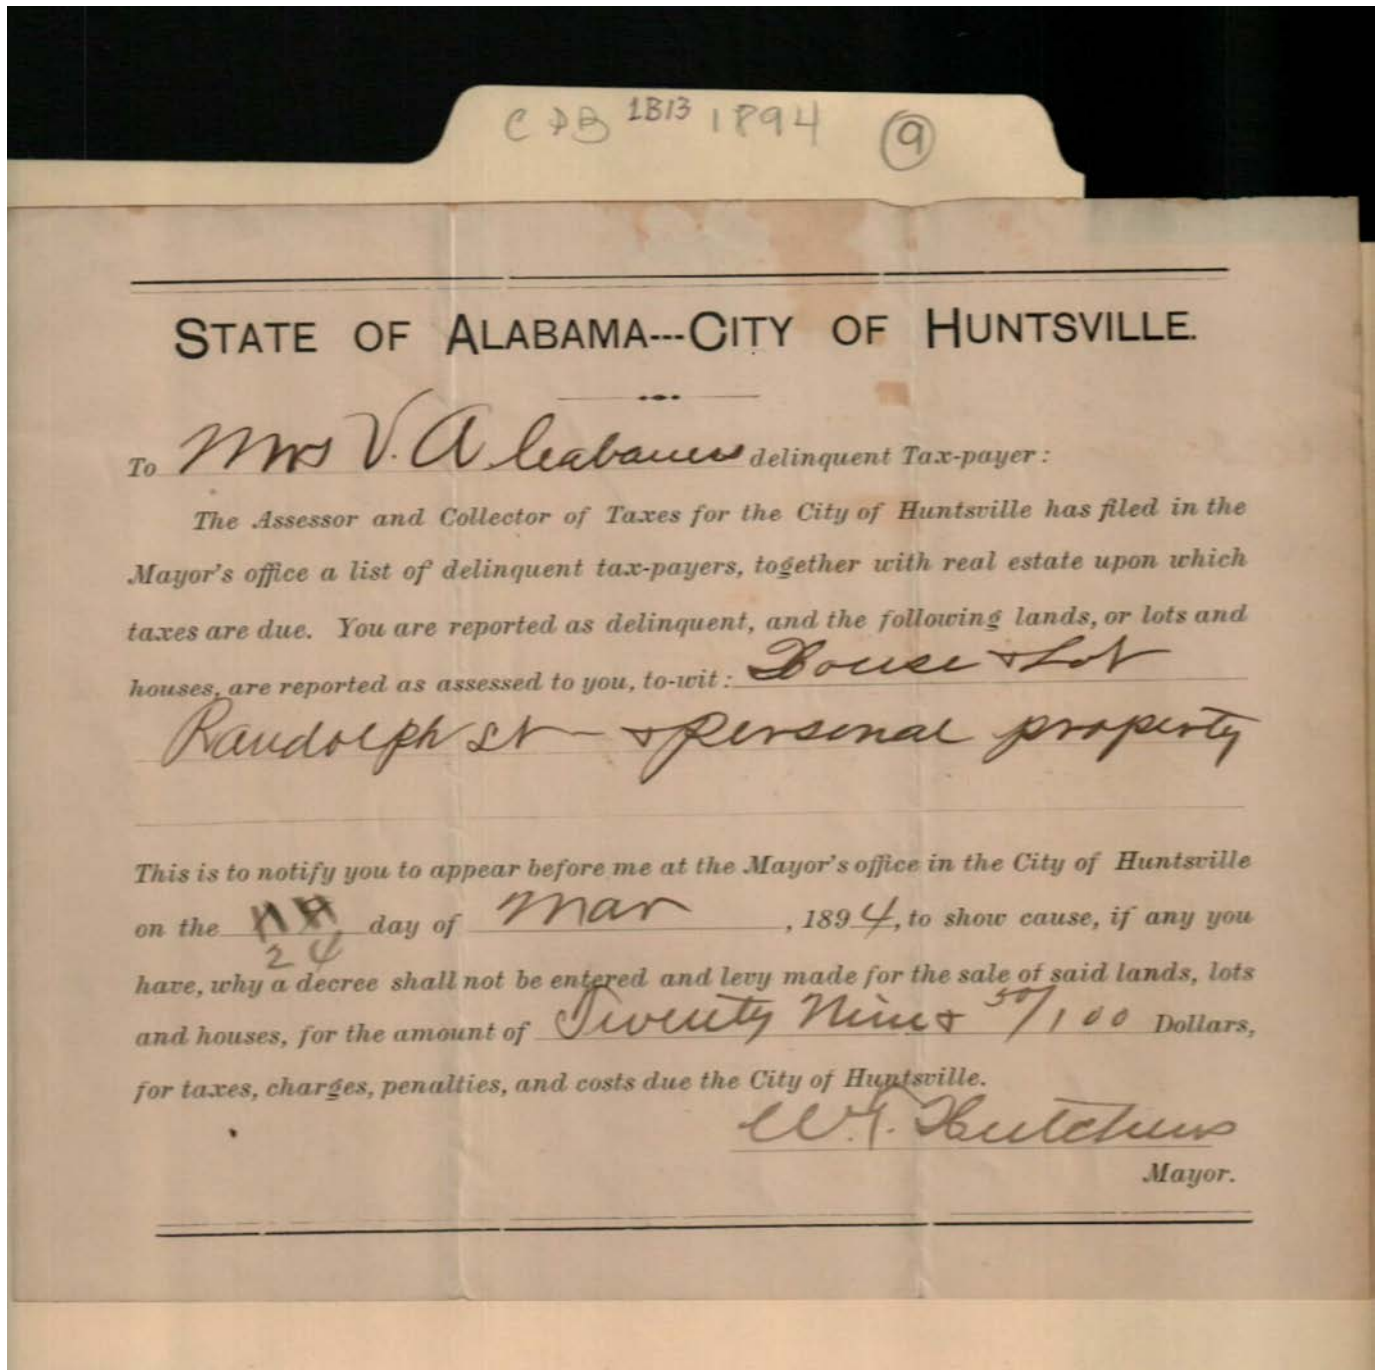 CDB 1B13 1894 9
STATE OF ALABAMA---CITY OF HUNTSVILLE.
To Mrs V. A Cabaness delinquent Tax-payer:
The Assessor and Collector of Taxes for the City of Huntsville has filed in the
Mayor's office a list of delinquent tax-payers, together with real estate upon which
taxes are due. You are reported as delinquent, and the following lands, or lots and
houses, are reported as assessed to you, to-wit: House & Lot
Randolph St — & personal property
This is to notify you to appear before me at the Mayor's office in the City of Huntsville
on the day of Mar, 1894, to show cause, if any you
24
have, why a decree shall not be entered and levy made for the sale of said lands, lots
and houses, for the amount of Twenty Nine & 50/100 Dollars,
for taxes, charges, penalties, and costs due the City of Huntsville.
Hutchens
Mayor.